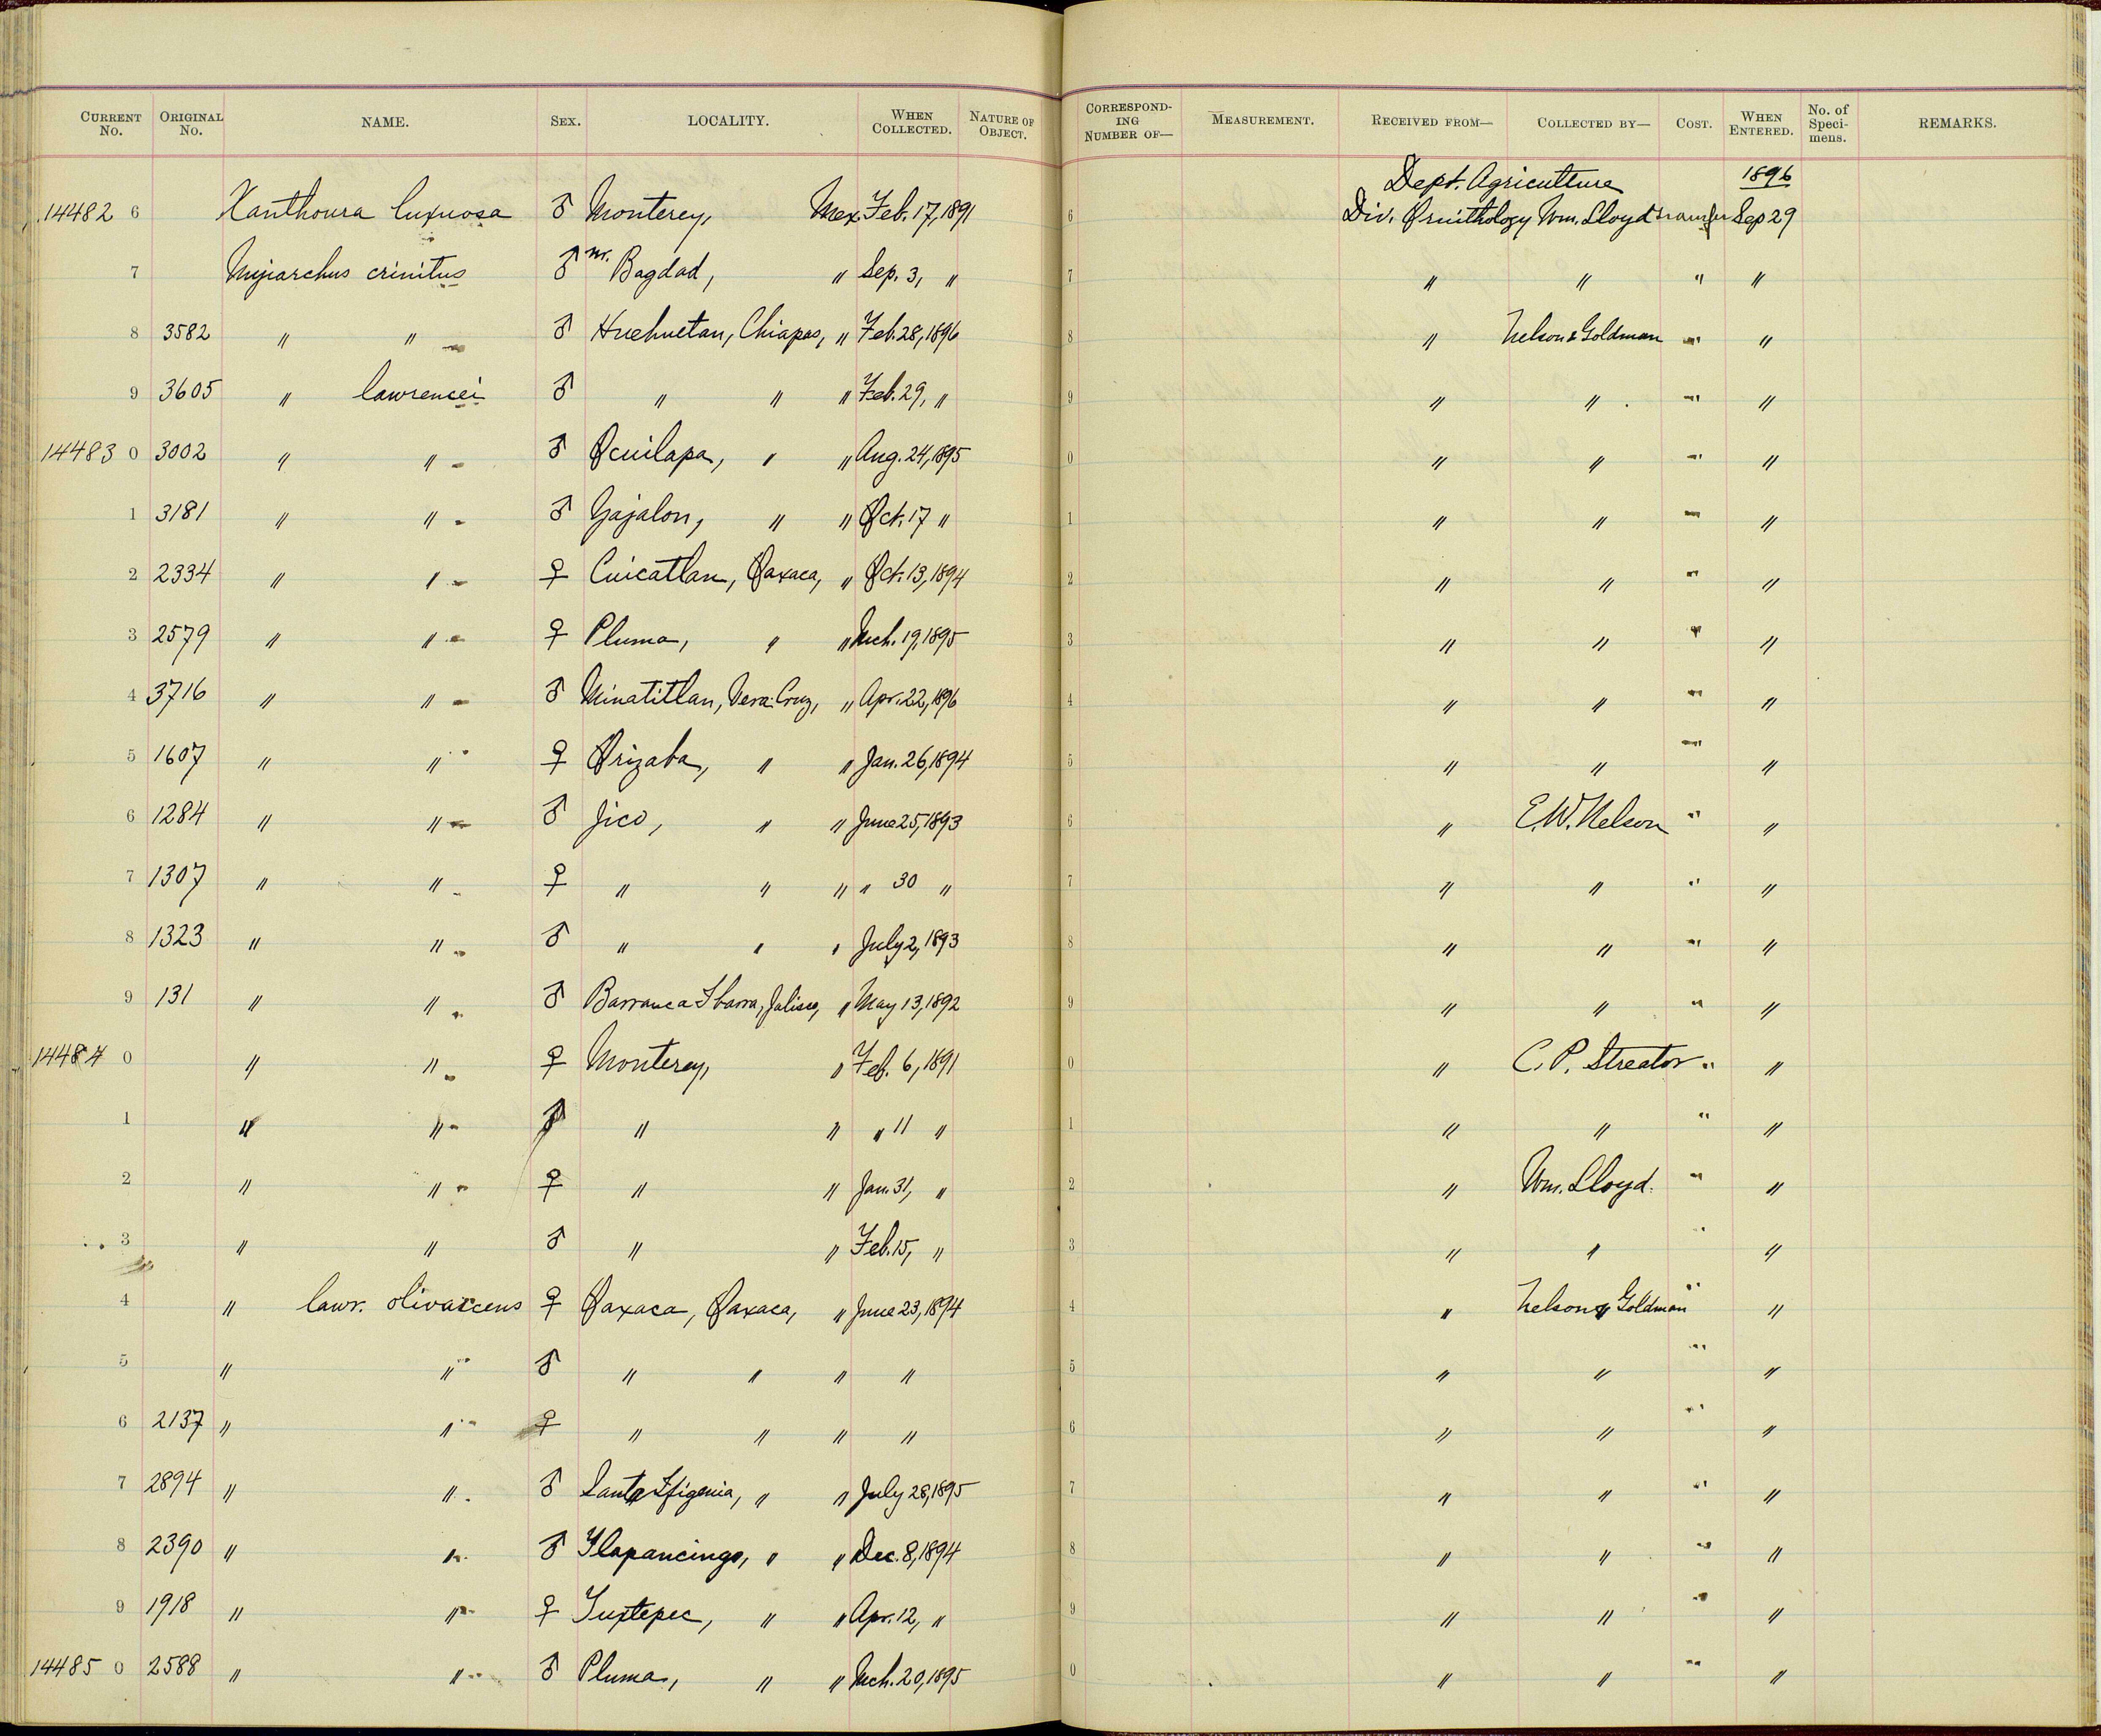 CURRENT No. ORIGINAL No. NAME. SEX. LOCALITY. WHEN COLLECTED. NATURE OF OBJECT. CORRESPONDING NUMBER OF— MEASUREMENT. RECEIVED FROM— COLLECTED BY— COST. WHEN ENTERED. No. of Specimens. REMARKS.
Dept. Agriculture 1896
14482 6 Xanthoura luxuosa ♂ Monterey, Mex. Feb. 17, 1891 6 Div. Ornithology Wm. Lloyd transfer Sep 29
7 Myiarchus crinitus ♂ nr. Bagdad, " Sep. 3, " 7 " " " "
8 3582 " " ♂ Huehuetan, Chiapas, " Feb. 28, 1896 8 " Nelson & Goldman " "
9 3605 " lawrencei ♂ " " " Feb. 29, " 9 " " " "
14483 0 3002 " " ♂ Ocuilapa, " " Aug. 24, 1895 0 " " " "
1 3181 " " ♂ Yajalon, " " Oct. 17 " 1 " " " "
2 2334 " " ♀ Cuicatlan, Oaxaca, " Oct. 13, 1894 2 " " " "
3 2579 " " ♀ Pluma, " " Mch. 19, 1895 3 " " " "
4 3716 " " ♂ Minatitlan, Vera Cruz, " Apr. 22, 1896 4 " " " "
5 1607 " " ♀ Orizaba, " " Jan. 26, 1894 5 " " " "
6 1284 " " ♂ Jico, " " June 25, 1893 6 " E. W. Nelson " "
7 1307 " " ♀ " " " " 30 " 7 " " " "
8 1323 " " ♂ " " " July 2, 1893 8 " " " "
9 131 " " ♂ Barranca Ibarra, Jalisco, " May 13, 1892 9 " " " "
14484 0 " " ♀ Monterey, " Feb. 6, 1891 0 " C. P. Streator " "
1 " " ♂ " " " 11 " 1 " " " "
2 " " ♀ " " Jan. 31, " 2 " Wm. Lloyd. " "
3 " " ♂ " " Feb. 15, " 3 " " " "
4 " lawr. olivascens ♀ Oaxaca, Oaxaca, " June 23, 1894 4 " Nelson & Goldman " "
5 " " ♂ " " " " 5 " " " "
6 2137 " " ♀ " " " " 6 " " " "
7 2894 " " ♂ Santa Efigenia, " " July 28, 1895 7 " " " "
8 2390 " " ♂ Tlapancingo, " " Dec. 8, 1894 8 " " " "
9 1918 " " ♀ Tuxtepec, " " Apr. 12, " 9 " " " "
14485 0 2588 " " ♂ Pluma, " " Mch. 20, 1895 0 " " " "